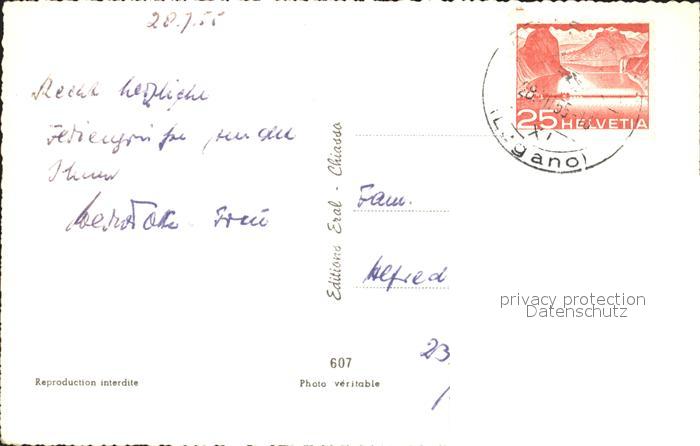 28.7.55
Recht herzliche
Feriengrüße senden
Ihnen
Frau
Editions Eral - Chiasso
607
Reproduction interdite
Photo véritable
25 HELVETIA
(Lugano)
Fam.
Alfred
23
privacy protection
Datenschutz